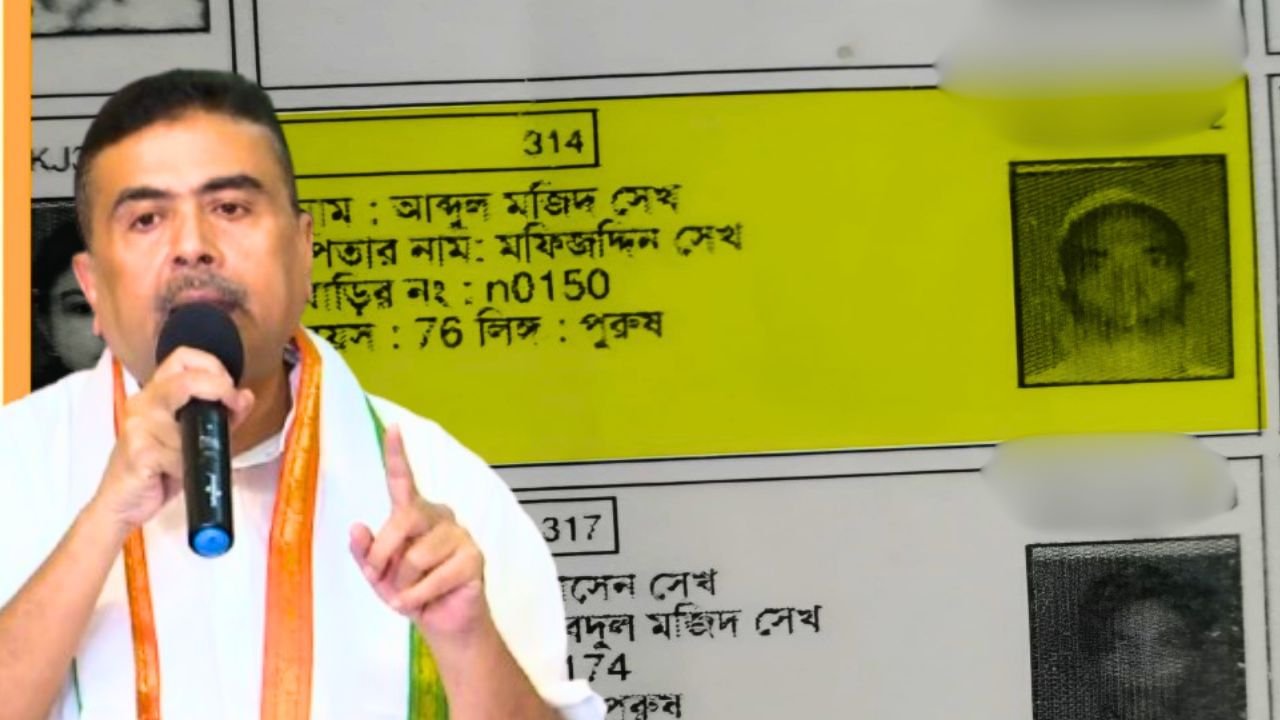 KJ3
314
নাম : আব্দুল মজিদ সেখ
পিতার নাম: মফিজদ্দিন সেখ
বাড়ির নং : n0150
বয়স : 76 লিঙ্গ : পুরুষ
317
সেন সেখ
বদুল মজিদ সেখ
174
পুরুষ